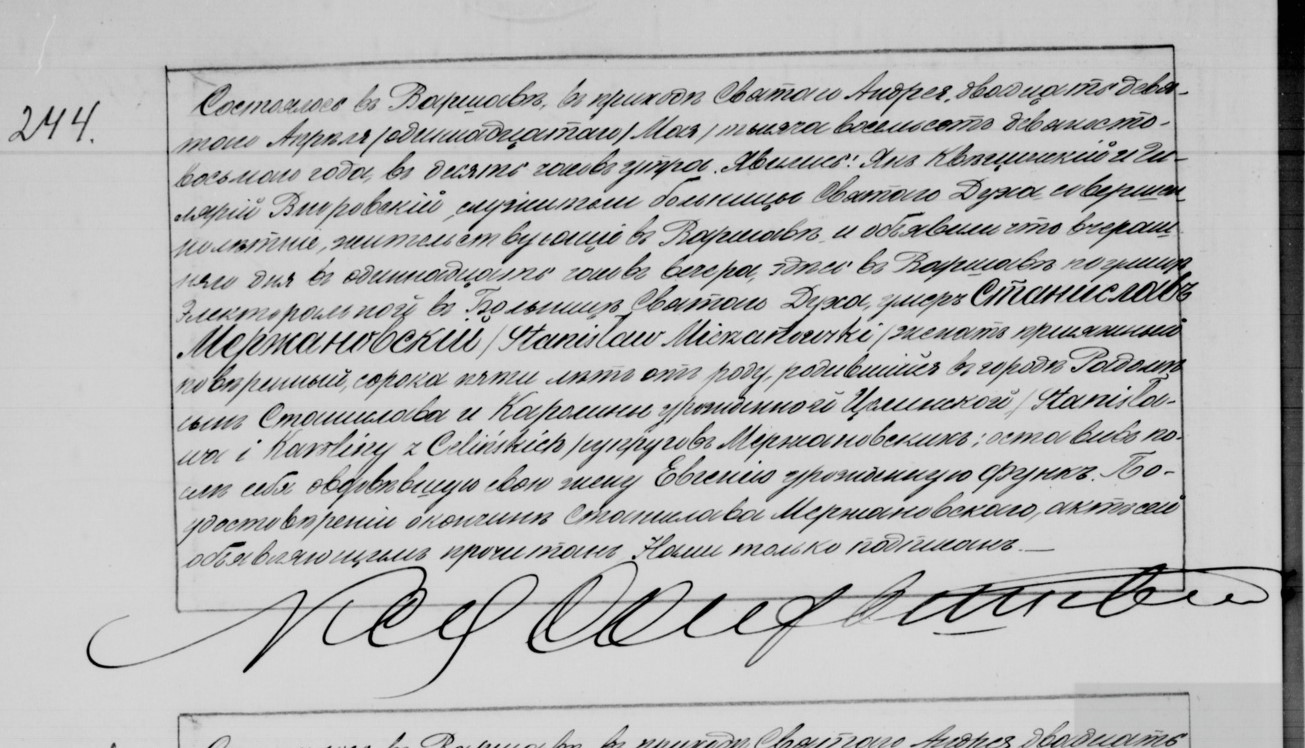 244.
Состоялось въ Варшавѣ, въ приходѣ Святаго Андрея, двадцать девя-
таго Апрѣля /одинадцатаго/ Мая / тысяча восемьсотъ девяносто-
восьмаго года, въ десять часовъ утра. Явились: Янъ Квѣцинскій и Ги-
лярій Вноровскій, служители больницы Святаго Духа, совершен-
нолѣтніе, жительствующіе въ Варшавѣ, и объявили что вчераш-
няго дня въ одиннадцать часовъ вечера, здѣсь въ Варшавѣ по улицѣ
Электоральной въ Больницѣ Святаго Духа, умеръ Станиславъ
Мержановскій /Stanisław Mierzanowski/ женатъ присяжный
повѣренный, сорока пяти лѣтъ отъ роду, родившійся въ городѣ Радомѣ
сынъ Станислава и Каролины урожденной Цѣлинской /Stanisła-
wa i Karoliny z Celińskich/ супруговъ Мержановскихъ; оставивъ по-
слѣ себя овдовѣвшую свою жену Евгенію урожденную Функъ. По-
удостовѣреніи о кончинѣ Станислава Мержановскаго, актъ сей
объявляющимъ прочитанъ, Нами только подписанъ. —
Состоялось въ Варшавѣ, въ приходѣ Святаго Андрея двадцать